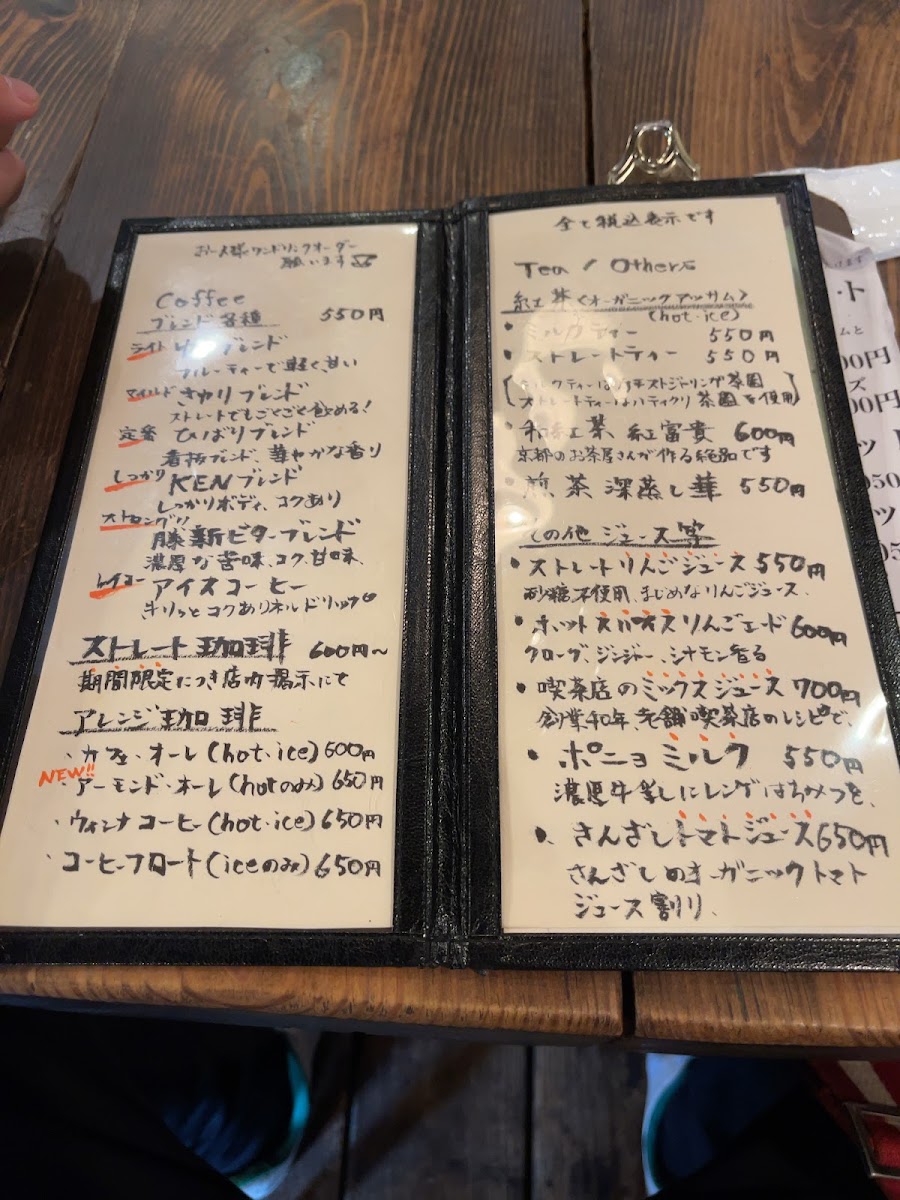 お一人様ワンドリンクオーダー
願います
Coffee
ブレンド各種 550円
ライト ブレンド
フルーティーで軽く甘い
マイルド さやりブレンド
ストレートでもごくごく飲める!
定番 ひばりブレンド
看板ブレンド、華やかな香り
しっかり KENブレンド
しっかりボディ、コクあり
ストロング!!
藤新ビターブレンド
濃厚な苦味、コク、甘味、
レイコー アイスコーヒー
キリっとコクありネルドリップ
ストレート珈琲 600円~
期間限定につき店内掲示にて
アレンジ珈琲
・カフェ・オーレ(hot・ice)600円
NEW!!
・アーモンド・オーレ(hotのみ)650円
・ウィンナコーヒー(hot・ice)650円
・コーヒーフロート(iceのみ)650円
全て税込表示です
Tea / Others
紅茶<オーガニックアッサム>
(hot・ice)
・ミルクティー 550円
・ストレートティー 550円
ストレートティーはハティクリ茶園を使用
・和紅茶 紅富貴 600円
京都のお茶屋さんが作る絶品です
・煎茶 深蒸し華 550円
その他ジュース等
・ストレートりんごジュース 550円
砂糖不使用、まじめなりんごジュース、
・ホットスパイスりんごエード 600円
クローブ、ジンジャー、シナモン香る
・喫茶店のミックスジュース 700円
創業和年、老舗喫茶店のレシピで、
・ポニョミルク 550円
濃厚牛乳にレンゲはちみつを、
・さんざしトマトジュース 650円
さんざしのオーガニックトマト
ジュース割り、